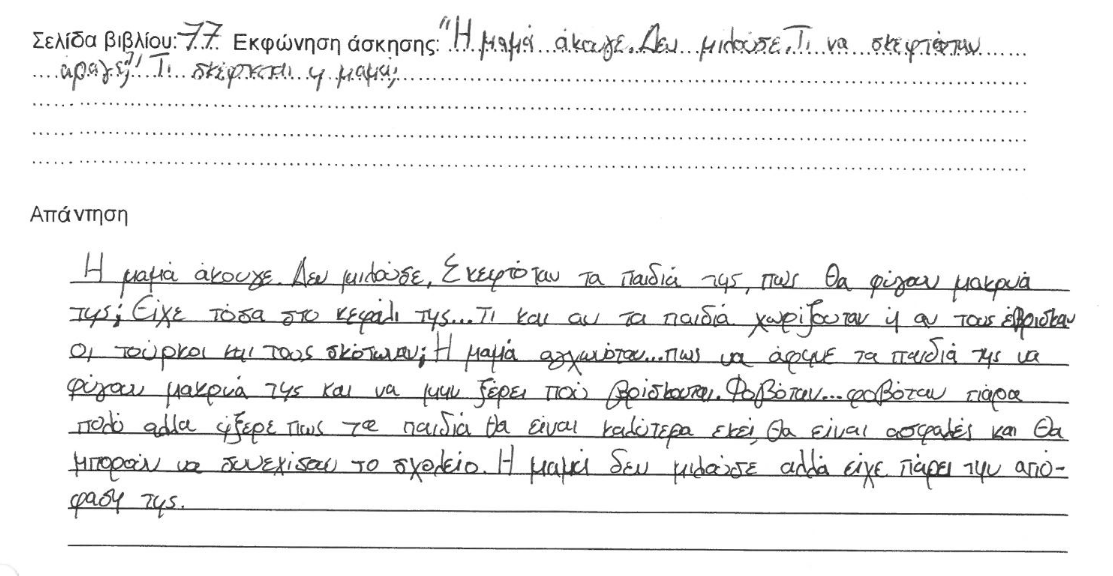 Σελίδα βιβλίου: 77 Εκφώνηση άσκησης: "Η μαμά άκουγε. Δεν μιλούσε. Τι να σκεφτόταν
άραγε;" Τι σκέφτεται η μαμά;
Απάντηση
Η μαμά άκουγε. Δεν μιλούσε. Σκεφτόταν τα παιδιά της, πως θα φύγουν μακρυά
της; Είχε τόσα στο κεφάλι της... Τι και αν τα παιδιά χωρίζονταν ή αν τους έβρισκαν
οι τούρκοι και τους σκότωναν; Η μαμά αγχωνόταν... πως να άφηνε τα παιδιά της να
φύγουν μακρυά της και να μην ξέρει πού βρίσκονται. Φοβόταν... φοβόταν πάρα
πολύ αλλα ήξερε πως τα παιδιά θα είναι καλύτερα εκεί, θα είναι ασφαλές και θα
μπορούν να συνεχίσουν το σχολείο. Η μαμά δεν μιλούσε αλλά είχε πάρει την από-
φαση της.